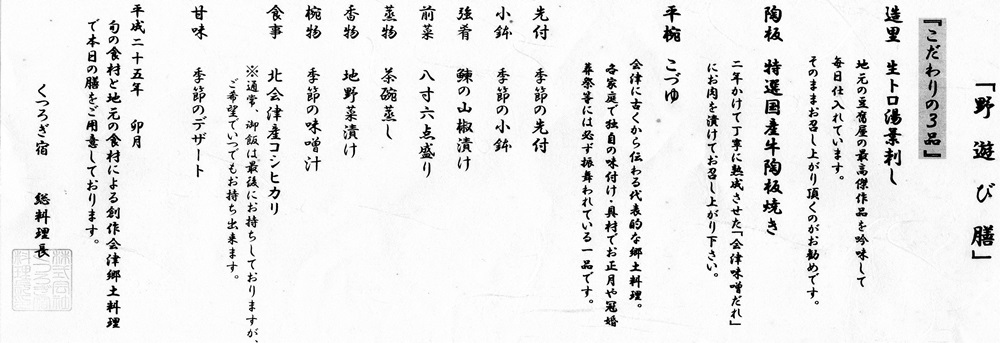 「野遊び膳」
『こだわりの3品』
造里 生トロ湯葉刺し
地元の豆富屋の最高傑作品を吟味して
毎日仕入れています。
そのままお召し上がり頂くのがお勧めです。
陶板 特選国産牛陶板焼き
二年かけて丁寧に熟成させた「会津味噌だれ」
にお肉を漬けてお召し上がり下さい。
平椀 こづゆ
会津に古くから伝わる代表的な郷土料理。
各家庭で独自の味付け・具材でお正月や冠婚
葬祭等には必ず振舞われている一品です。
先付 季節の先付
小鉢 季節の小鉢
強肴 鰊の山椒漬け
前菜 八寸六点盛り
蒸物 茶碗蒸し
香物 地野菜漬け
椀物 季節の味噌汁
食事 北会津産コシヒカリ
※通常、御飯は最後にお持ちしておりますが、
ご希望でいつでもお持ち出来ます。
甘味 季節のデザート
平成二十五年 卯月
旬の食材と地元の食材による創作会津郷土料理
で本日の膳をご用意しております。
くつろぎ宿 総料理長